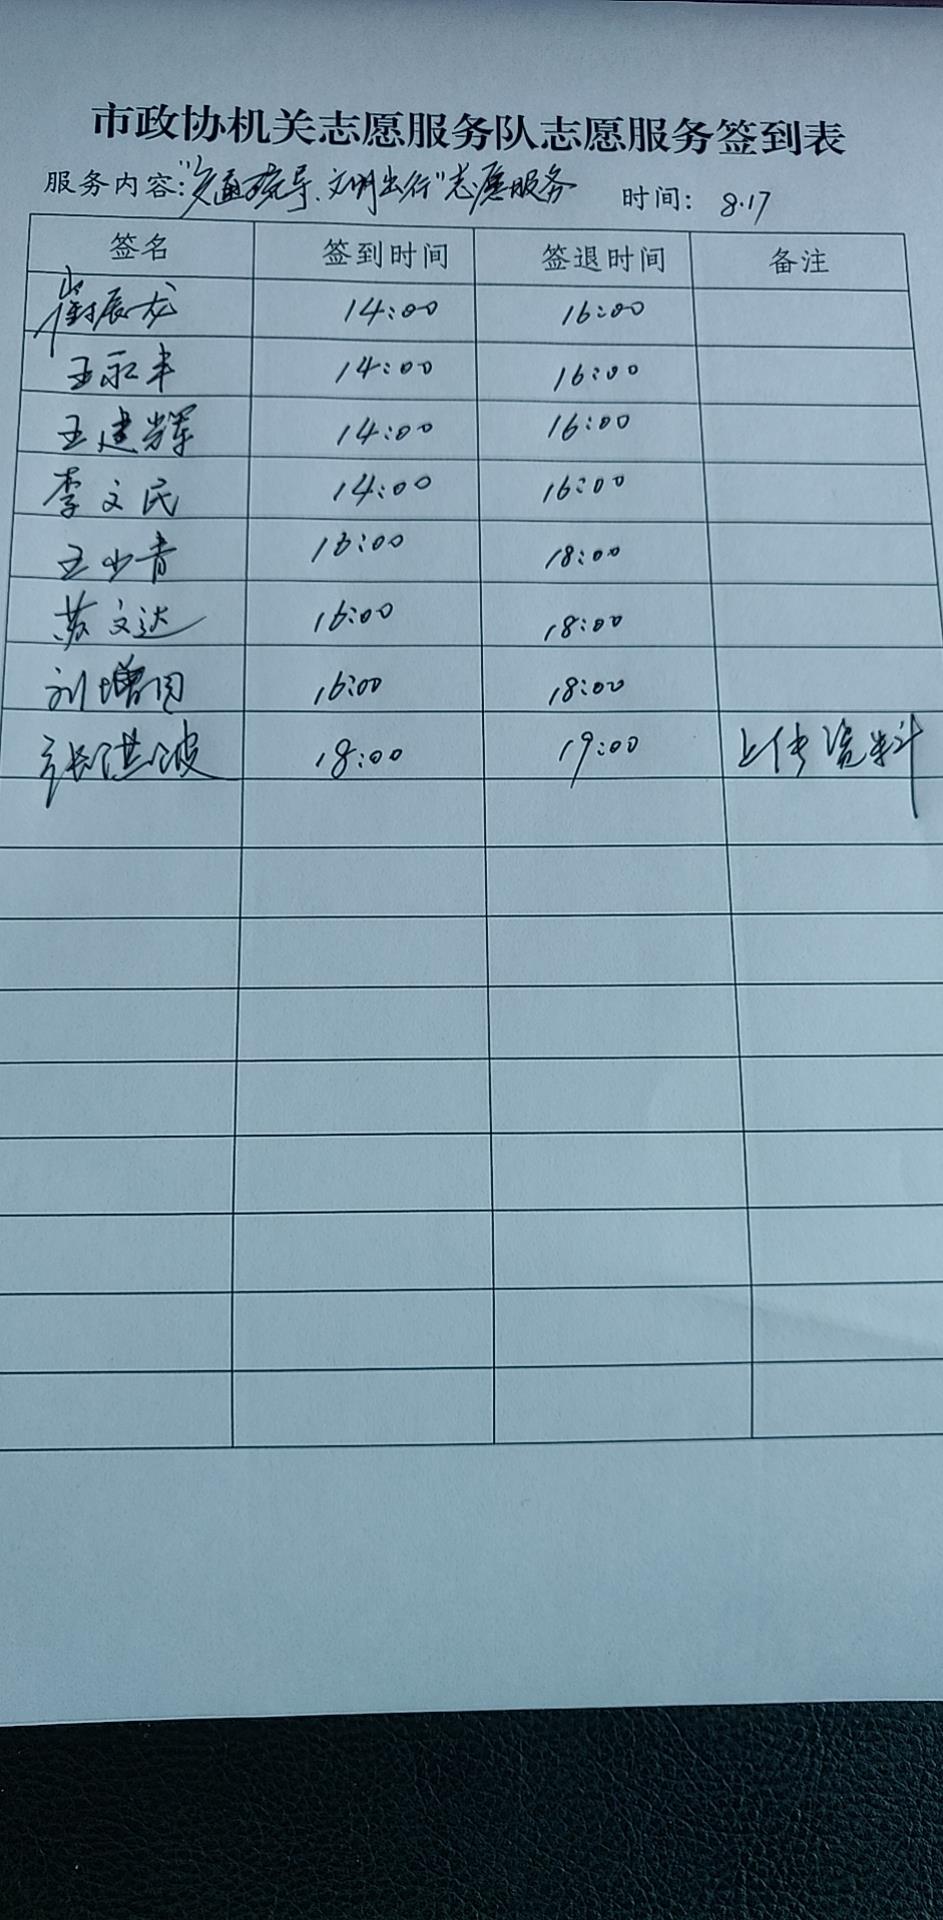 市政协机关志愿服务队志愿服务签到表
服务内容:"交通疏导、文明出行"志愿服务 时间: 8.17
签名 签到时间 签退时间 备注
崔振龙 14:00 16:00
王永丰 14:00 16:00
王建辉 14:00 16:00
李文民 14:00 16:00
王少青 16:00 18:00
苏文达 16:00 18:00
刘增 16:00 18:00
张洪波 18:00 19:00 上传资料